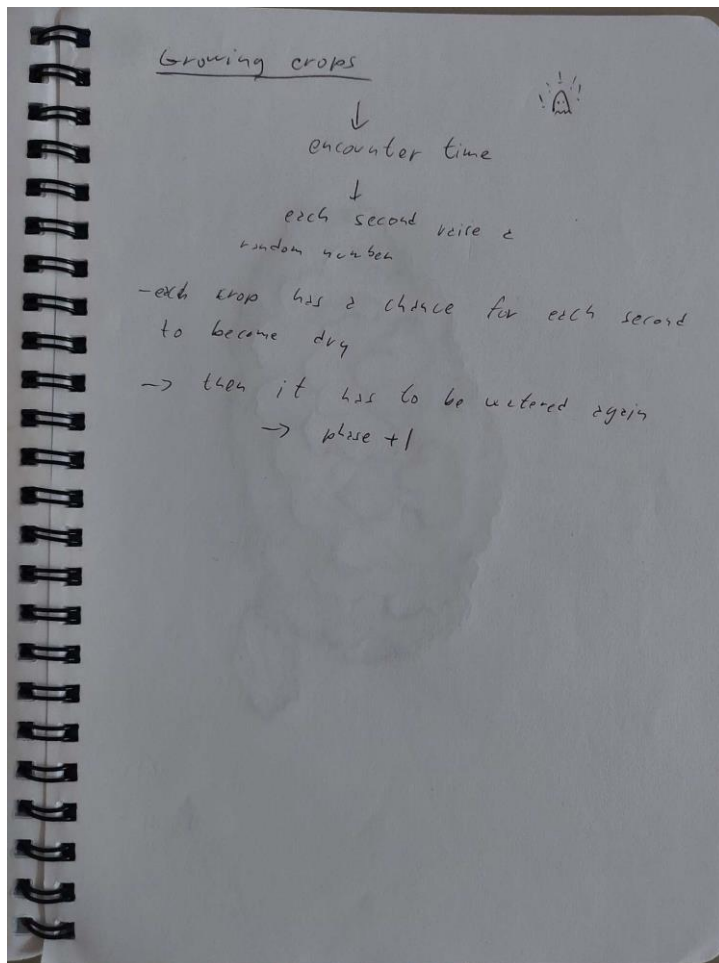 Growing crops
↓
encounter time
↓
each second raise a
random number
- each crop has a chance for each second
to become dry
-> then it has to be watered again
-> phase +1